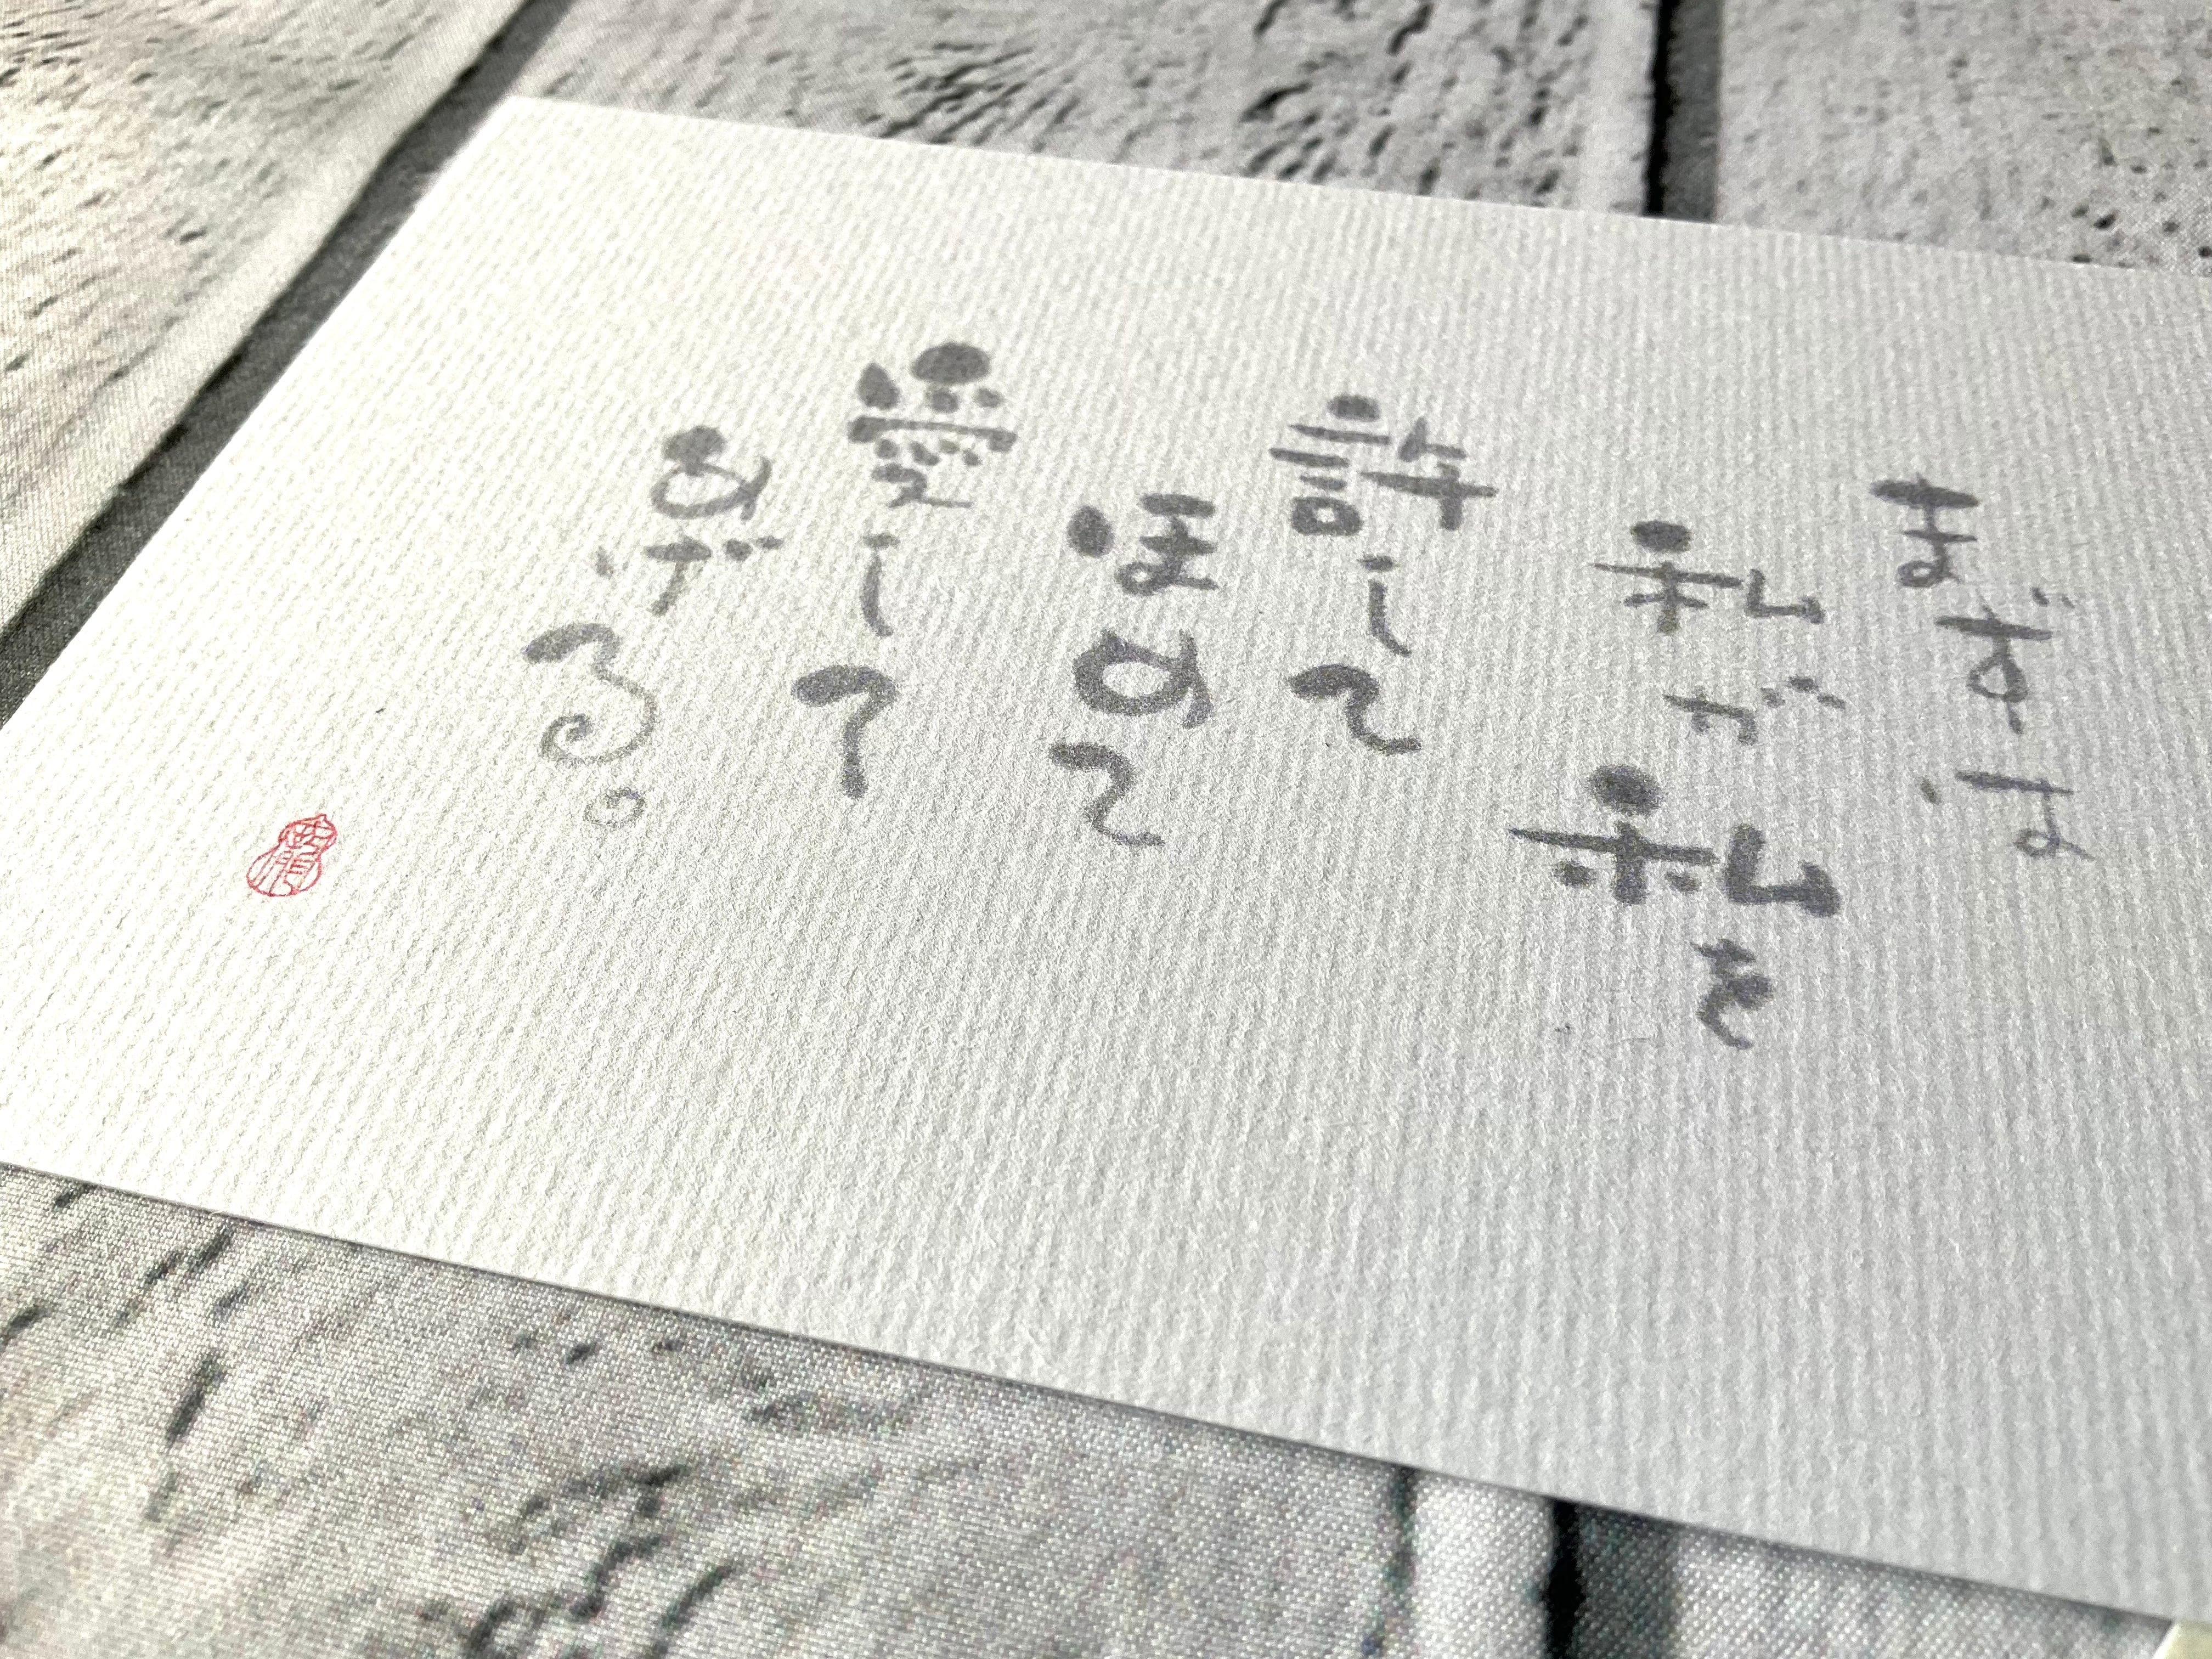 まずは
私が私を
許して
ほめて
愛して
あげる。